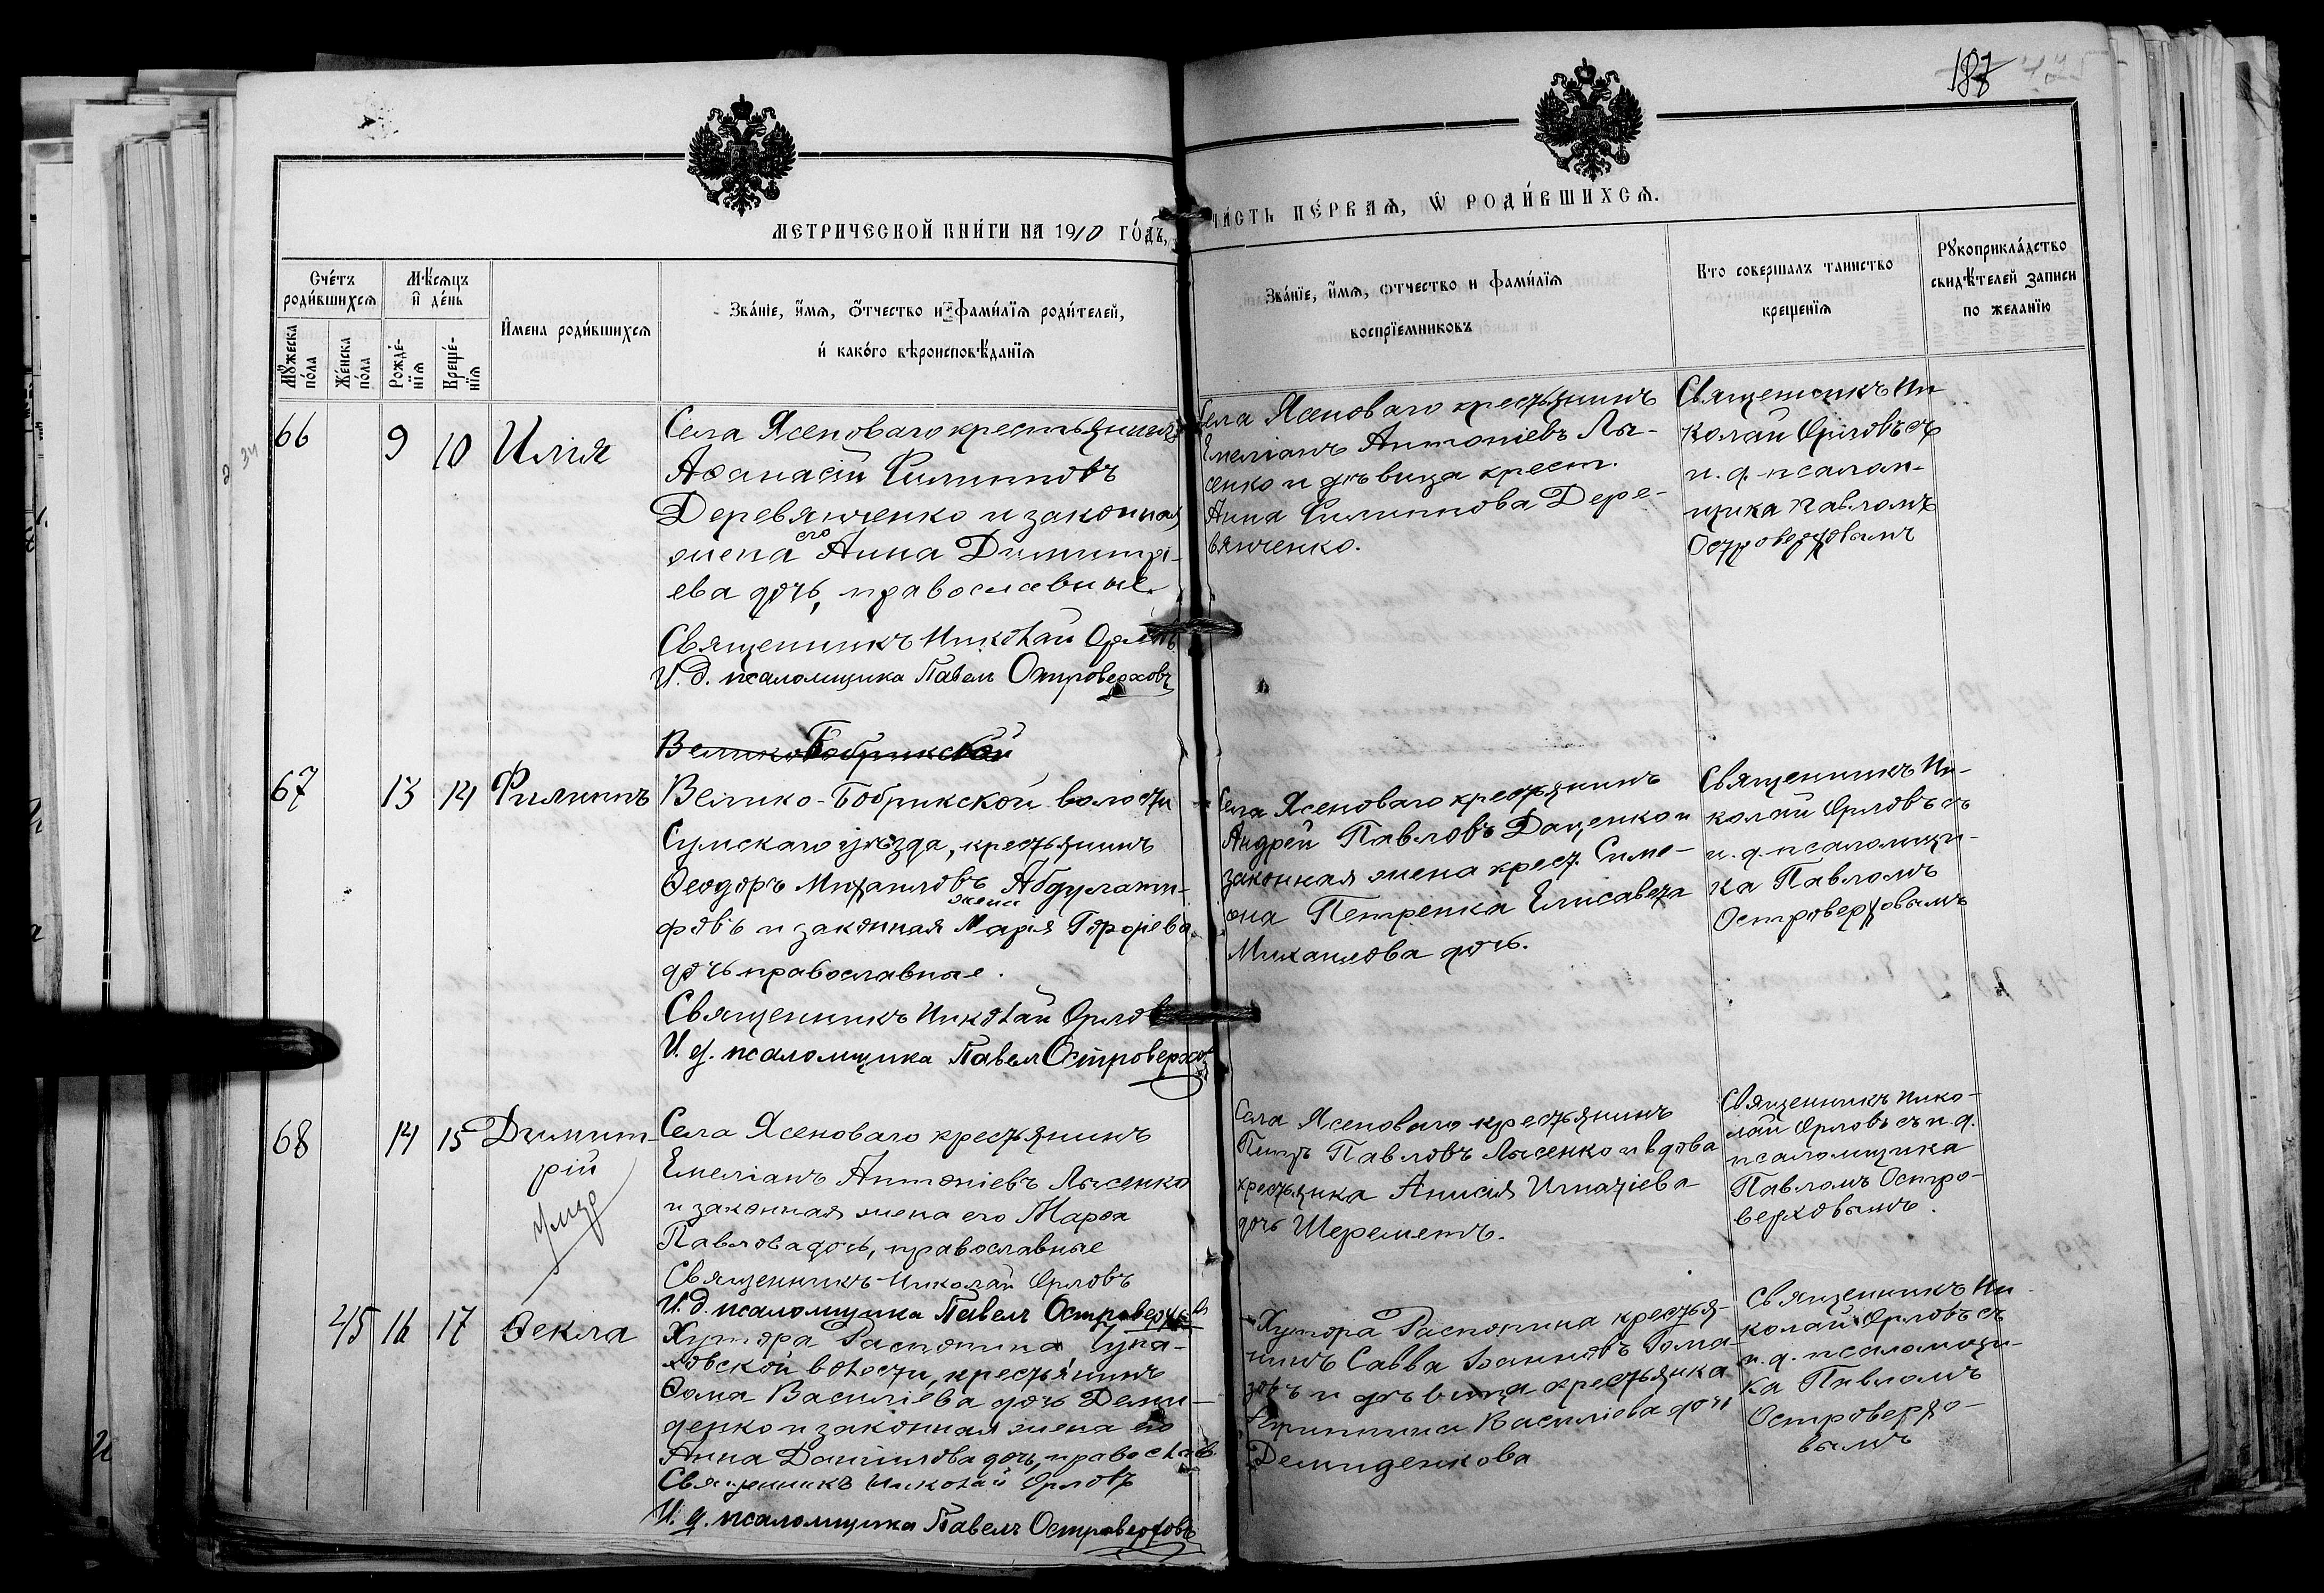 187
МЕТРИЧЕСКОЙ КНИ́ГИ НА 1910 ГО́ДЪ,
ЧА́СТЬ ПЕ́РВАѦ, Ѿ РОДИ́ВШИХСѦ.
Сче́тъ роди́вшихсѧ
Мѣ́сѧцъ и де́нь
Имена роди́вшихсѧ
Зва́нїе, и́мѧ, о́тчество и фами́лїѧ роди́телей,
и́ како́го вѣроисповѣ́данїѧ
Мꙋжеска по́ла
Же́нска по́ла
Рожде́нїѧ
Креще́нїѧ
Зва́нїе, и́мѧ, отчество и фами́лїѧ
воспрїемниковъ
Кто совершалъ таинство
крещенїѧ
Рꙋкоприкла́дство
свидѣ́телей записи
по желанїю
66 9 10 Илія
Села Ясеноваго крестьянинъ
Аѳанасій Филипповъ
Деревянченко и законная
жена его Анна Димитрі-
ева дочь, православные.
Священникъ Николай Орловъ
И. д. псаломщика Павелъ Островерховъ
Села Ясеноваго крестьянинъ
Емеліанъ Антоніевъ Лы-
сенко и дѣвица крест.
Анна Филиппова Дере-
вянченко.
Священникъ Ни-
колай Орловъ съ
и. д. псалом-
щика Павломъ
Островерховымъ
Велико Бобрикской
67 13 14 Филиппъ
Велико-Бобрикской волости
Сумскаго уѣзда, крестьянинъ
Ѳеодоръ Михаиловъ Абдулати-
фовъ и законная жена Марія Гордіева
дочь православные.
Священникъ Николай Орловъ
И. д. псаломщика Павелъ Островерхов
Села Ясеноваго крестьянинъ
Андрей Павловъ Даценко и
законная жена крест. Симе-
она Петренка Елисавета
Михаилова дочь.
Священникъ Ни-
колай Орловъ съ
и. д. псаломщи-
ка Павломъ
Островерховымъ
68 14 15 Димит-
рій
умре
Села Ясеноваго крестьянинъ
Емеліанъ Антоніевъ Лысенко
и законная жена его Марѳа
Павлова дочь, православные
Священникъ Николай Орловъ
И. д. псаломщика Павелъ Островерховъ
Села Ясеноваго крестьянинъ
Петръ Павловъ Лысенко и вдова
крестьянка Анисія Игнатіева
дочь Шереметъ.
Священникъ Нико-
лай Орловъ съ и. д.
псаломщика
Павломъ Остро-
верховымъ.
45 16 17 Ѳекла
Хутора Распопина
волости, крестьянинъ
Ѳома Василіева дочь Деми-
денко и законная жена его
Анна Даніилова дочь, православ.
Священникъ Николай Орловъ
И. д. псаломщика Павелъ Островерховъ
Хутора Распопина крестья-
нинъ Савва Іоанновъ Рома-
зовъ и дѣвица крестьянка
Василіева дочь
Демиденкова
Священникъ Ни-
колай Орловъ съ
и. д. псаломщи-
ка Павломъ
Островерхо-
вымъ